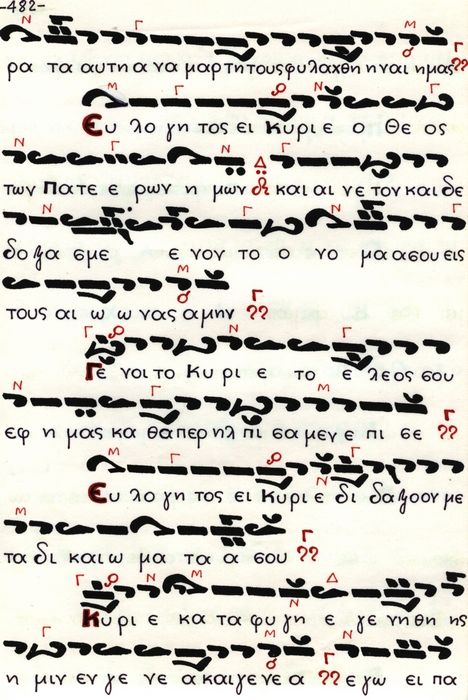 -482-
ρα τα αυτη α να μαρτητουςφυλαχθη ηναι ημας
Ευ λο γη τος ει Κυρι ε ο Θε ος
των Πατε ε ρων η μων και αι νε τον και δε
δο ξα σμε ε νον το ο νο μα α σου εις
τους αι ω ω νας α μην
Γε νοι το Κυ ρι ε το ε λεος σου
εφ η μας κα θαπερ ηλ πι σα μεν ε πι σε
Ευ λο γη τος ει Κυρι ε δι δαξον με
τα δι και ω μα τα α σου
Κυρι ε κα τα φυ γη ε γε νηθη ης
η μιν εν γε νε α και γε νε α εγω ει πα